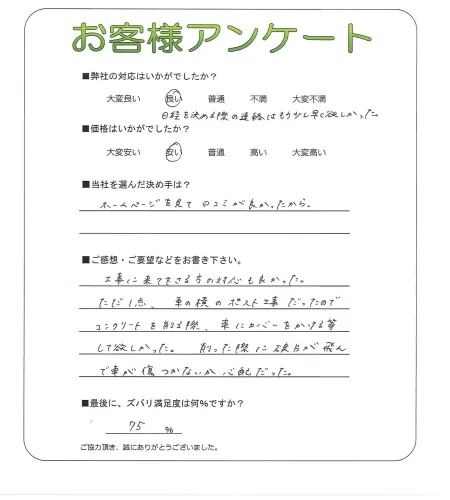 お客様アンケート
■弊社の対応はいかがでしたか？
大変良い 良い 普通 不満 大変不満
日程を決める際の連絡はもう少し早く欲しかった。
■価格はいかがでしたか？
大変安い 安い 普通 高い 大変高い
■当社を選んだ決め手は？
ホームページを見て 口コミが良かったから。
■ご感想・ご要望などをお書き下さい。
工事に来て下さる方の対応も良かった。
ただ1点、車の横のポスト工事だったので
コンクリートを削る際、車にカバーをかける等
して欲しかった。 削った際に破片が飛んで
で車が傷つかないか心配だった。
■最後に、ズバリ満足度は何%ですか？
75 %
ご協力頂き、誠にありがとうございました。